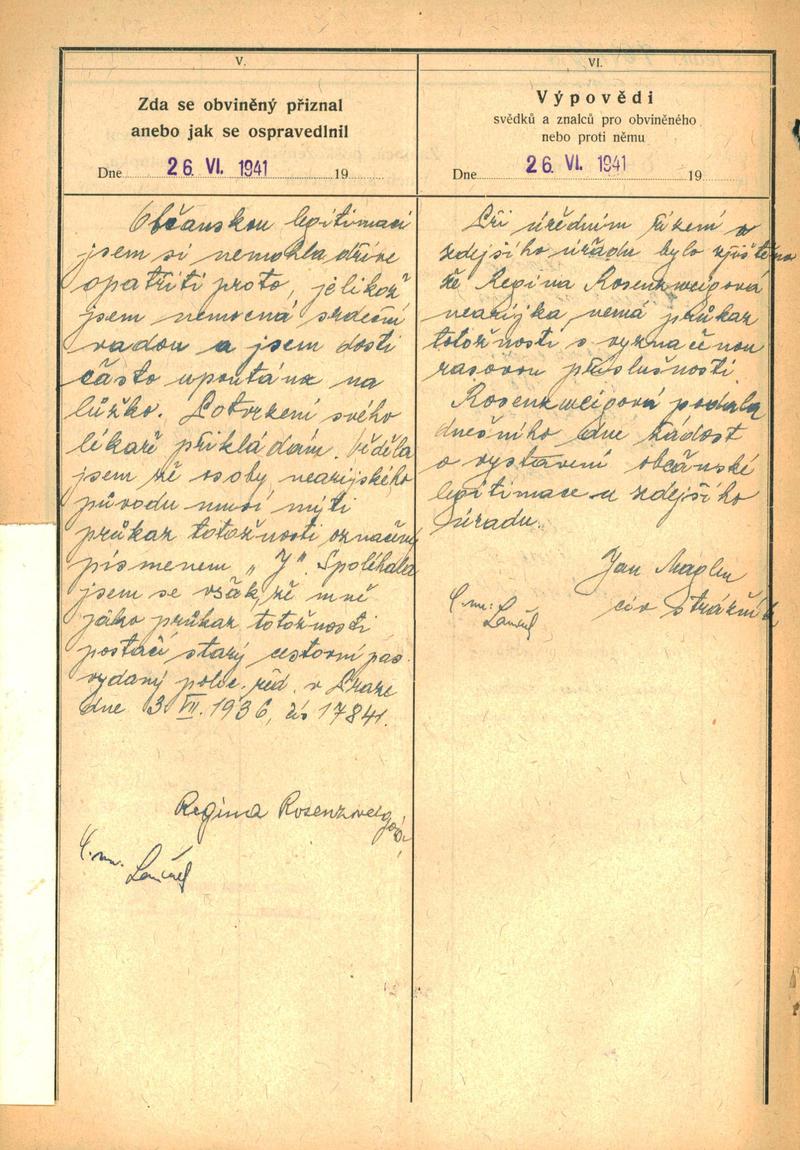 V.
Zda se obviněný přiznal
anebo jak se ospravedlnil
Dne 26. VI. 1941 19
Občanskou legitimaci
jsem si nemohla dříve
opatřiti proto, jelikož
jsem nemocná srdeční
vadou a jsem dosti
často upoutána na
lůžko. Potvrzení svého
lékaře přikládám. Věděla
jsem že osoby nearijského
původu musí míti
průkaz totožnosti označený
písmenem „J". Spoléhala
jsem se však, že mně
jako průkaz totožnosti
postačí starý cestovní pas
vydaný polic. řed. v Praze
dne 3. VII. 1936, čís 17841.
Regina Rosenzweigová
VI.
Výpovědi
svědků a znalců pro obviněného
nebo proti němu
Dne 26. VI. 1941 19
Při úředním řízení u
zdejšího úřadu bylo zjištěno
že Regina Rosenzweigová
nearijka nemá průkaz
totožnosti s vyznačenou
rasovou příslušností
Rosenzweigová podala
dnešního dne žádost
o vystavení občanské
legitimace u zdejšího
úřadu.
Jan
civ strážník